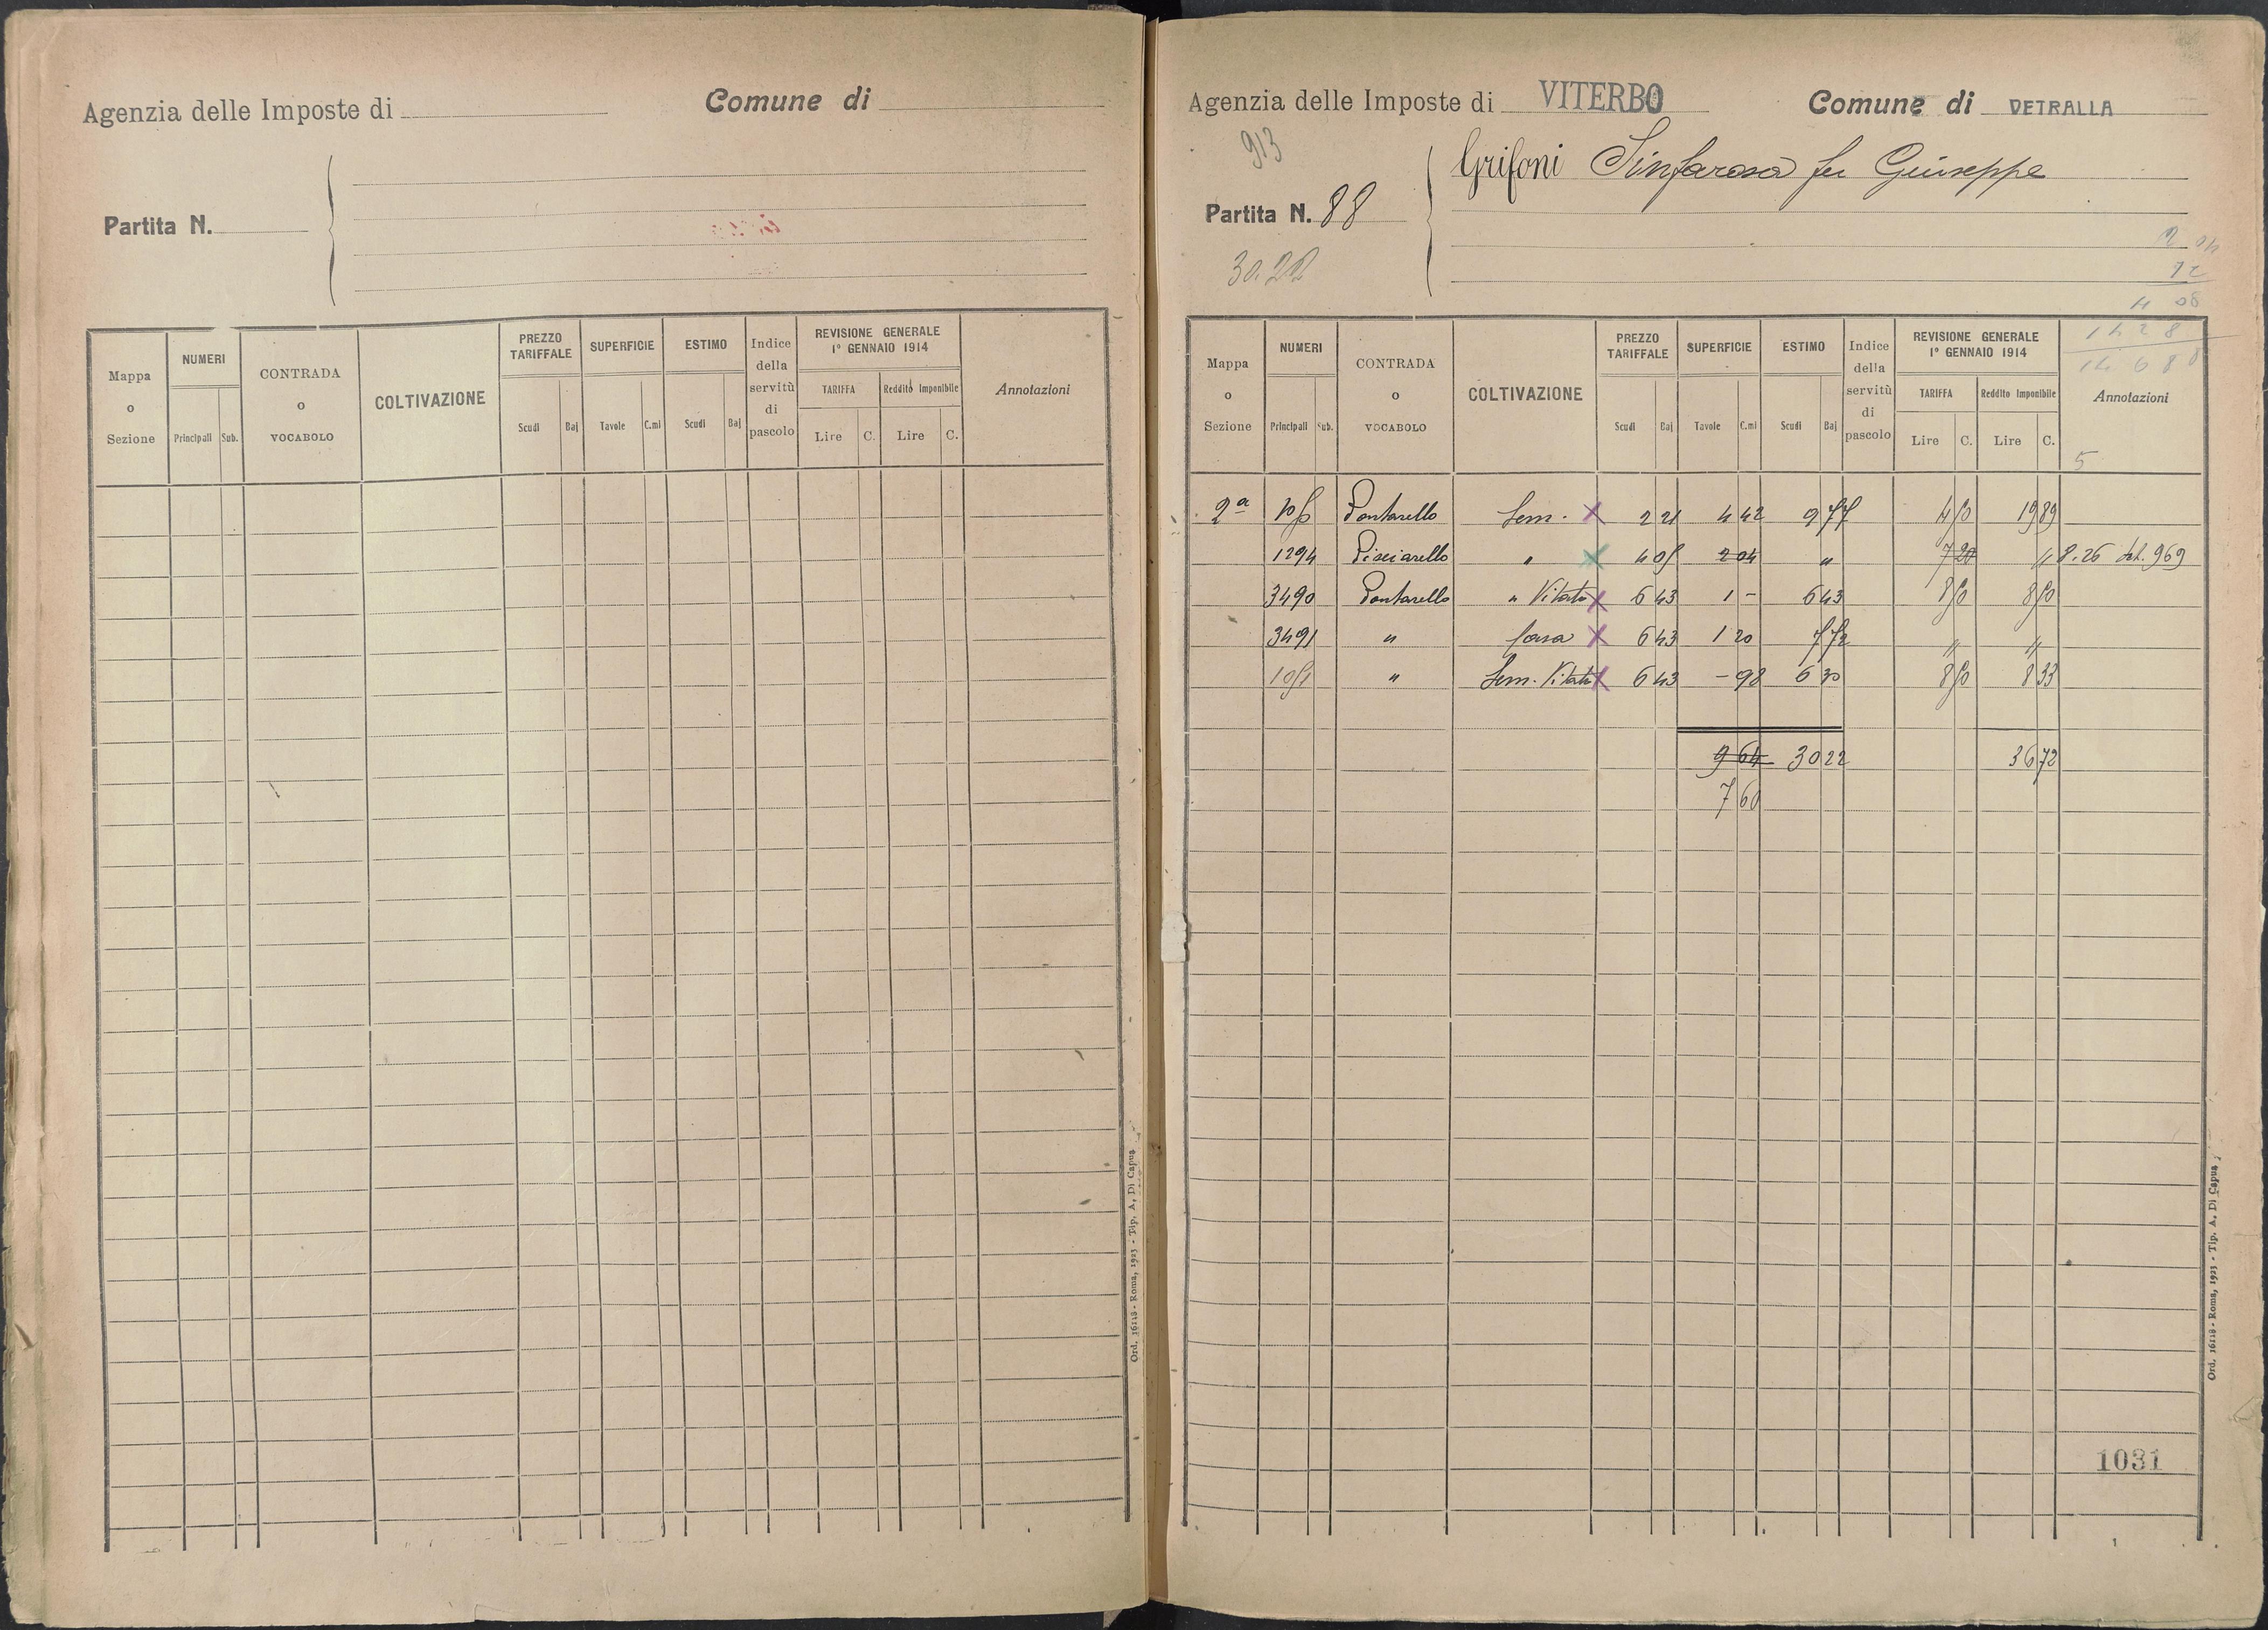 Agenzia delle Imposte di
Comune di
Partita N.
Mappa o Sezione
NUMERI
Principali Sub.
CONTRADA o VOCABOLO
COLTIVAZIONE
PREZZO TARIFFALE
Scudi Baj
SUPERFICIE
Tavole C.mi
ESTIMO
Scudi Baj
Indice della servitù di pascolo
REVISIONE GENERALE 1° GENNAIO 1914
TARIFFA
Reddito Imponibile
Lire C. Lire C.
Annotazioni
Ord. 16118 - Roma, 1923 - Tip. A. Di Capua
Agenzia delle Imposte di VITERBO
Comune di VETRALLA
913
Grifoni Sinfarosa fu Giuseppe
Partita N. 88
30.22
2 04
12
4 08
14 2 8
14 6 8 8
Mappa o Sezione
NUMERI
Principali Sub.
CONTRADA o VOCABOLO
COLTIVAZIONE
PREZZO TARIFFALE
Scudi Baj
SUPERFICIE
Tavole C.mi
ESTIMO
Scudi Baj
Indice della servitù di pascolo
REVISIONE GENERALE 1° GENNAIO 1914
TARIFFA
Reddito Imponibile
Lire C. Lire C.
Annotazioni
5
2ª Pontarello Sem. X 2 21 4 42 9 77 4 50 19 89
1294 Pisciarello " X 4 05 2 04 " 7 20 " 8.26 969
3490 Pontarello " Vitato X 6 43 1 - 6 43 8 50 8 50
3491 " Casa X 6 43 1 20 7 72 " "
1051 " Sem. Vitato X 6 43 - 98 6 30 8 50 8 33
9 64 30 22 36 72
7 60
1031
Ord. 16118 - Roma, 1923 - Tip. A. Di Capua